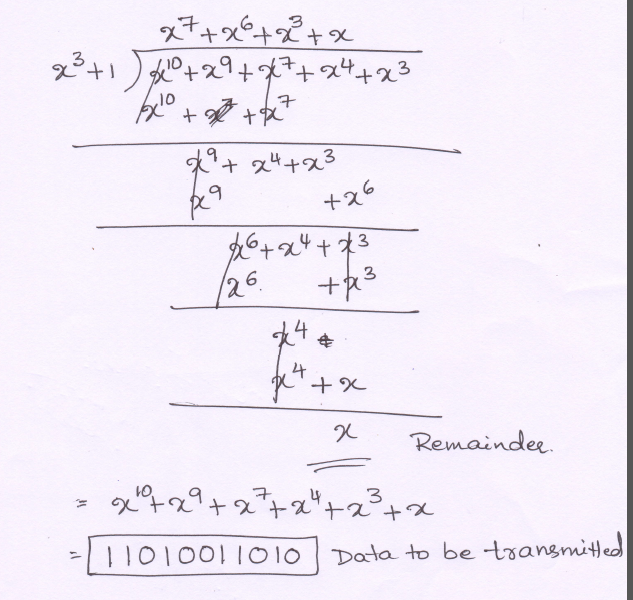 x⁷+x⁶+x³+x
x³+1 ) x¹⁰+x⁹+x⁷+x⁴+x³
x¹⁰ + +x⁷
x⁹+ x⁴+x³
x⁹ +x⁶
x⁶+x⁴+x³
x⁶ +x³
x⁴
x⁴+x
x Remainder.
= x¹⁰+x⁹+x⁷+x⁴+x³+x
= 11010011010 Data to be transmitted